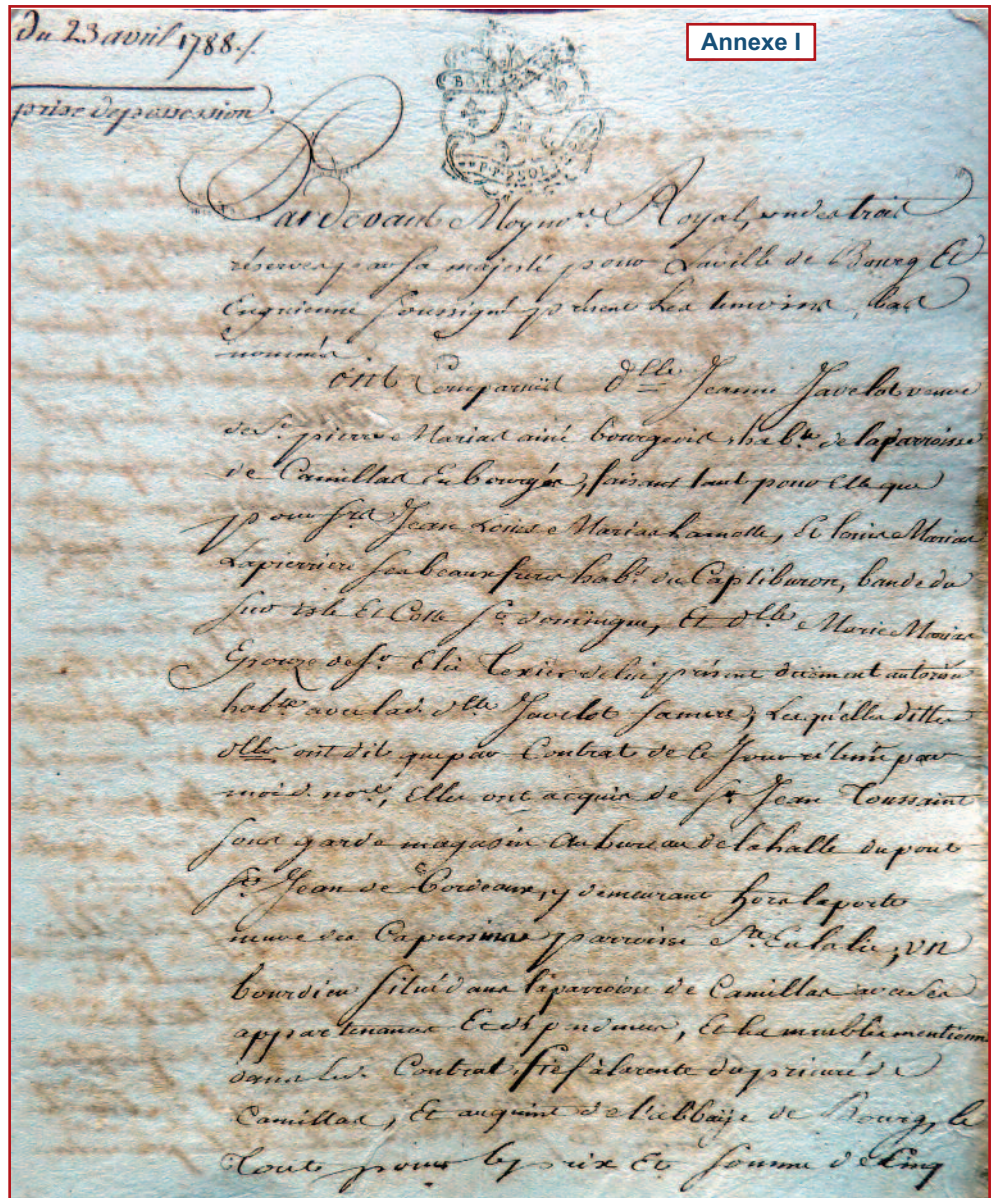 du 23 avril 1788./.
Annexe I
prise de possession
BORD
2 SOLS
Pardevant Moy no.re Royal, un des trois
réservés par sa majesté pour Laville de Bourg Et
En guienne soussigné présent Les temoins bas
nommés
ont Comparües d.lle Jeanne Javelot veuve
de S.r pierre Marias ainé bourgeois hab.te de la parroisse
de Camillas En bourgés, faisant tant pour Elle que
pour s.rs Jean Louis Marias Lamotte, Et louis Marias
Lapierriere ses beaux freres hab.s du Cap tiburon, bande du
sud isle Et Coste S.t domingue, Et d.lle Marie Marias
Epouze de S.r Elie Texier de lui présent duement autorisée
hab.te avec lad. d.lle Javelot sa mere, Lesquelles dittes
d.lles ont dit que par Contrat de Ce Jour retenu par
moid. no.re, Elles ont acquis de S.r Jean Toussaint
sous garde magasin au bureau de la halle du pont
S.t Jean de Bordeaux, y demeurant hors la porte
neuve des Capucins parroisse S.te Eulalie, un
bourdieu situé dans la parroisse de Camillas avec ses
appartenances Et dépendances, Et les meubles mentionnés
dans led. Contrat, fief à la rente du prieuré de
Camillas, Et au quint de l'abbaye de Bourg, le
Tout pour le prix Et somme de Cinq